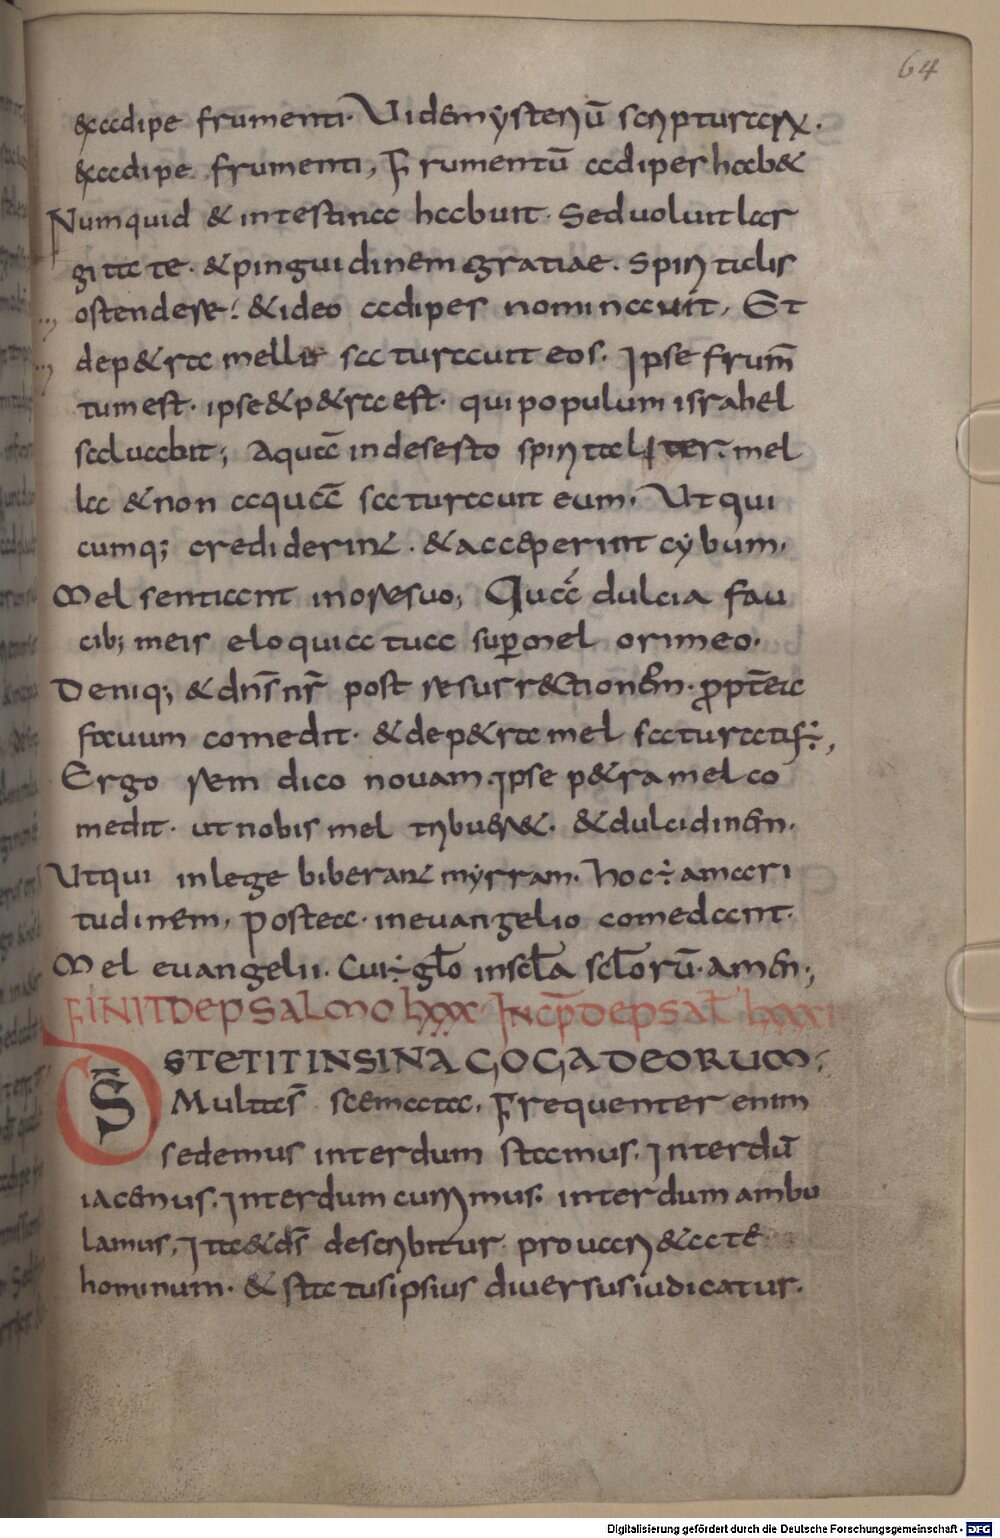 64
ex adipe frumenti. Vidẽmysteriũ scripturarum.
ex adipe frumenti, Frumentũ adipes hab&
Numquid & intestina habuit. Sed voluit lar
gitate. & pinguidinem gratiae. spiritalis
ostendere. & ideo adipes nominavit, Et
dep&ra mellis saturavit eos. Ipse frum̃
tum est. ipse & p&ra est. qui populum israhel
salvabit; Aquã in deserto spiritaliter. mel
la & non aquã saturavit eum. Ut qui
cumq; crediderint. & acceperint cybum.
Mel sentiant in ore suo; Quã dulcia fau
cib; meis eloquia tua sup mel ori meo.
Deniq; & dns̄ nr̄ post resurr&tionem. propt̄eia
favum comedit. & dep&ra mel saturatis ÷,
Ergo rem dico novam. Ipse p&ra mel co
medit. ut nobis mel tribuer&. & dulcidinem.
Ut qui in lege biberant myrram. hoc ÷ amari
tudinem, postea. in evangelio comedant.
Mel evangelii. Cui ÷ glo in scla sclorũ. amen;
FINIT DE PSALMO LXXX. INCP̄ DE PSAL LXXXI
D̄S̄ STETIT IN SINAGOGA DEORUM;
Multas̄ scemata. Frequenter enim
sedemus interdum stamus. Interdũ
iacemus. Interdum currimus. interdum ambu
lamus, Ita & ds̄ describitur pro vari&ate
hominum. & status ipsius diversus iudicatur.
Digitalisierung gefördert durch die Deutsche Forschungsgemeinschaft - DFG